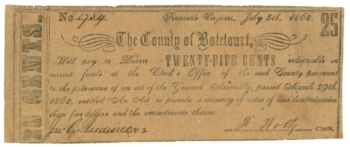 No. Fincastle Virginia, July 5th, 1862.
25
25 CENTS.
The County of Botetourt,
Will pay to Bearer TWENTY-FIVE CENTS redeemable in
current funds at the Clerk's Office of said County pursuant
to the provisions of an act of the General Assembly, passed March 29th,
1862, entitled An Act to provide a currency of notes of less denomination
than five dollars and the amendments thereto.
Clerk.